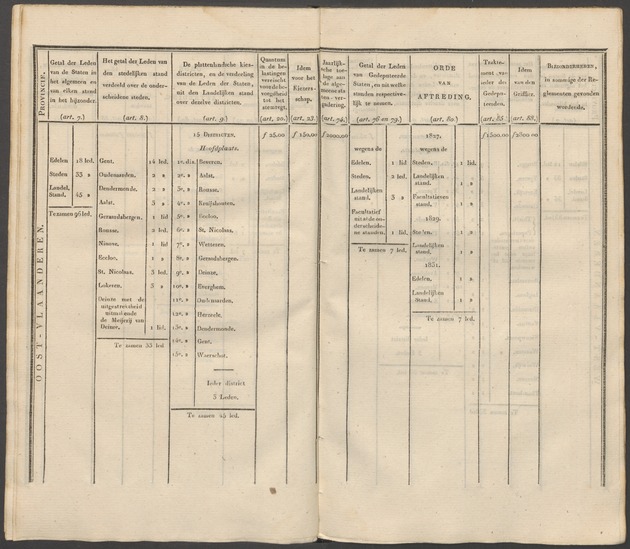 PROVINCIE.
Getal der Leden
van de Staten in
het algemeen en
van elken stand
in het bijzonder.
(art. 7.)
Het getal der Leden van
den stedelijken stand
verdeeld over de onder-
scheidene steden.
(art. 8.)
De plattenlandsche kies-
districten, en de verdeeling
van de Leden der Staten,
uit den Landelijken stand
over dezelve districten.
(art. 9.)
Quantum
in de be-
lastingen
vereischt
voor de be-
voegdheid
tot het
stemregt.
(art. 20.)
Idem
voor het
Kiezers-
schap.
(art. 23.)
Jaarlijk-
sche toe-
lage aan
de alge-
meene sta-
ten-ver-
gadering.
(art. 74.)
Getal der Leden
van Gedeputeerde
Staten, en uit welke
standen respective-
lijk te nemen.
(art. 78 en 79.)
ORDE
VAN
AFTREDING.
(art. 80.)
Trakte-
ment van
ieder der
Gedepu-
teerden.
(art. 85.
Idem
van den
Griffier.
(art. 88.)
BIJZONDERHEDEN,
in sommige der Re-
glementen gevonden
wordende.
OOST-VLAANDEREN.
Edelen 18 led.
Steden 33 »
Landel.
Stand. 45 »
Te zamen 96 led.
Gent. 14 led.
Oudenaarden. 2 »
Dendermonde. 2 »
Aalst. 3 »
Geeraardsbergen. 1 lid
Ronsse. 2 led.
Ninove. 1 lid
Eecloo. 1 »
St. Nicolaas. 3 led.
Lokeren. 3 »
Deinze met de
uitgestrektheid
uitmakende
de Meijerij van
Deinze. 1 lid.
Te zamen 33 led
15 DISTRICTEN.
Hoofdplaats.
1e. dis. Beveren.
2e. » Aalst.
3e. » Ronsse.
4e. » Kruijshoutem.
5e. » Eecloo.
6e. » St. Nicolaas.
7e. » Wetteren.
8e. » Geeraardsbergen.
9e. » Deinze.
10e. » Everghem.
11e. » Oudenaarden.
12e. » Herzeele.
13e. » Dendermonde.
14e. » Gent.
15e. » Waerschot.
Ieder district
3 Leden.
Te zamen 45 led.
f 25.00
f 150.00
f 2000.00
wegens de
Edelen. 1 lid
Steden. 2 led
Landelijken
stand. 3 »
Facultatief
uit al de on-
derscheide-
ne standen. 1 lid
Te zamen 7 led.
1827.
wegens de
Steden. 1 lid.
Landelijken
stand. 1 »
Facultatieven
stand. 1 »
1829.
Steden. 1 »
Landelijken
stand. 1 »
1831.
Edelen. 1 »
Landelijken
Stand. 1 »
Te zamen 7 led.
f 1500.00
f 2800.00